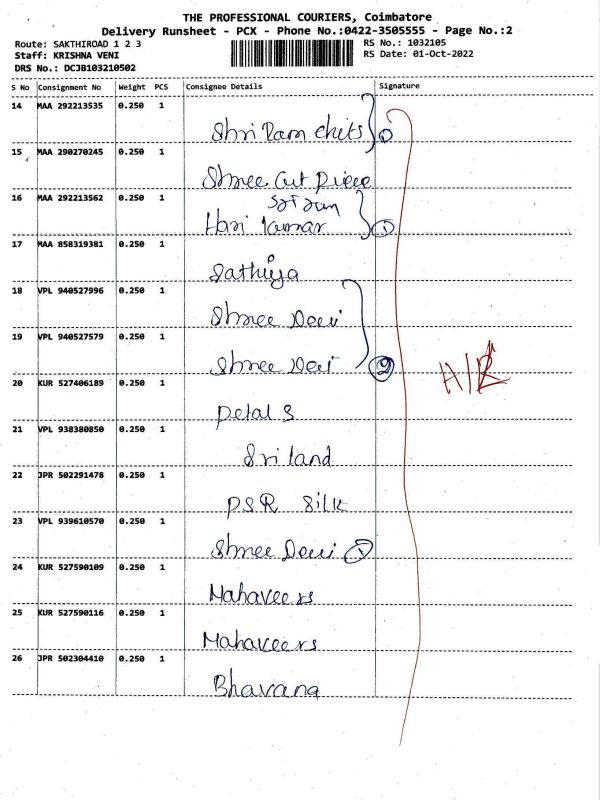 THE PROFESSIONAL COURIERS, Coimbatore
Delivery Runsheet - PCX - Phone No.:0422-3505555 - Page No.:2
Route: SAKTHIROAD 1 2 3
RS No.: 1032105
Staff: KRISHNA VENI
RS Date: 01-Oct-2022
DRS No.: DCJB103210502
S No Consignment No Weight PCS Consignee Details Signature
14 MAA 292213535 0.250 1
Shri Ram chits
15 MAA 290270245 0.250 1
Shree Cut Piece
16 MAA 292213562 0.250 1
Sri Ram
Hari Kumar 1
17 MAA 858319381 0.250 1
Sathiya
18 VPL 940527996 0.250 1
Shree Devi
19 VPL 940527579 0.250 1
Shree Devi
20 KUR 527406189 0.250 1
Petal S
21 VPL 938380850 0.250 1
Sri land
22 JPR 502291478 0.250 1
PSR Silk
23 VPL 939610570 0.250 1
Shree Devi
24 KUR 527590109 0.250 1
Mahaveers
25 KUR 527590116 0.250 1
Mahaveers
26 JPR 502304410 0.250 1
Bhavana